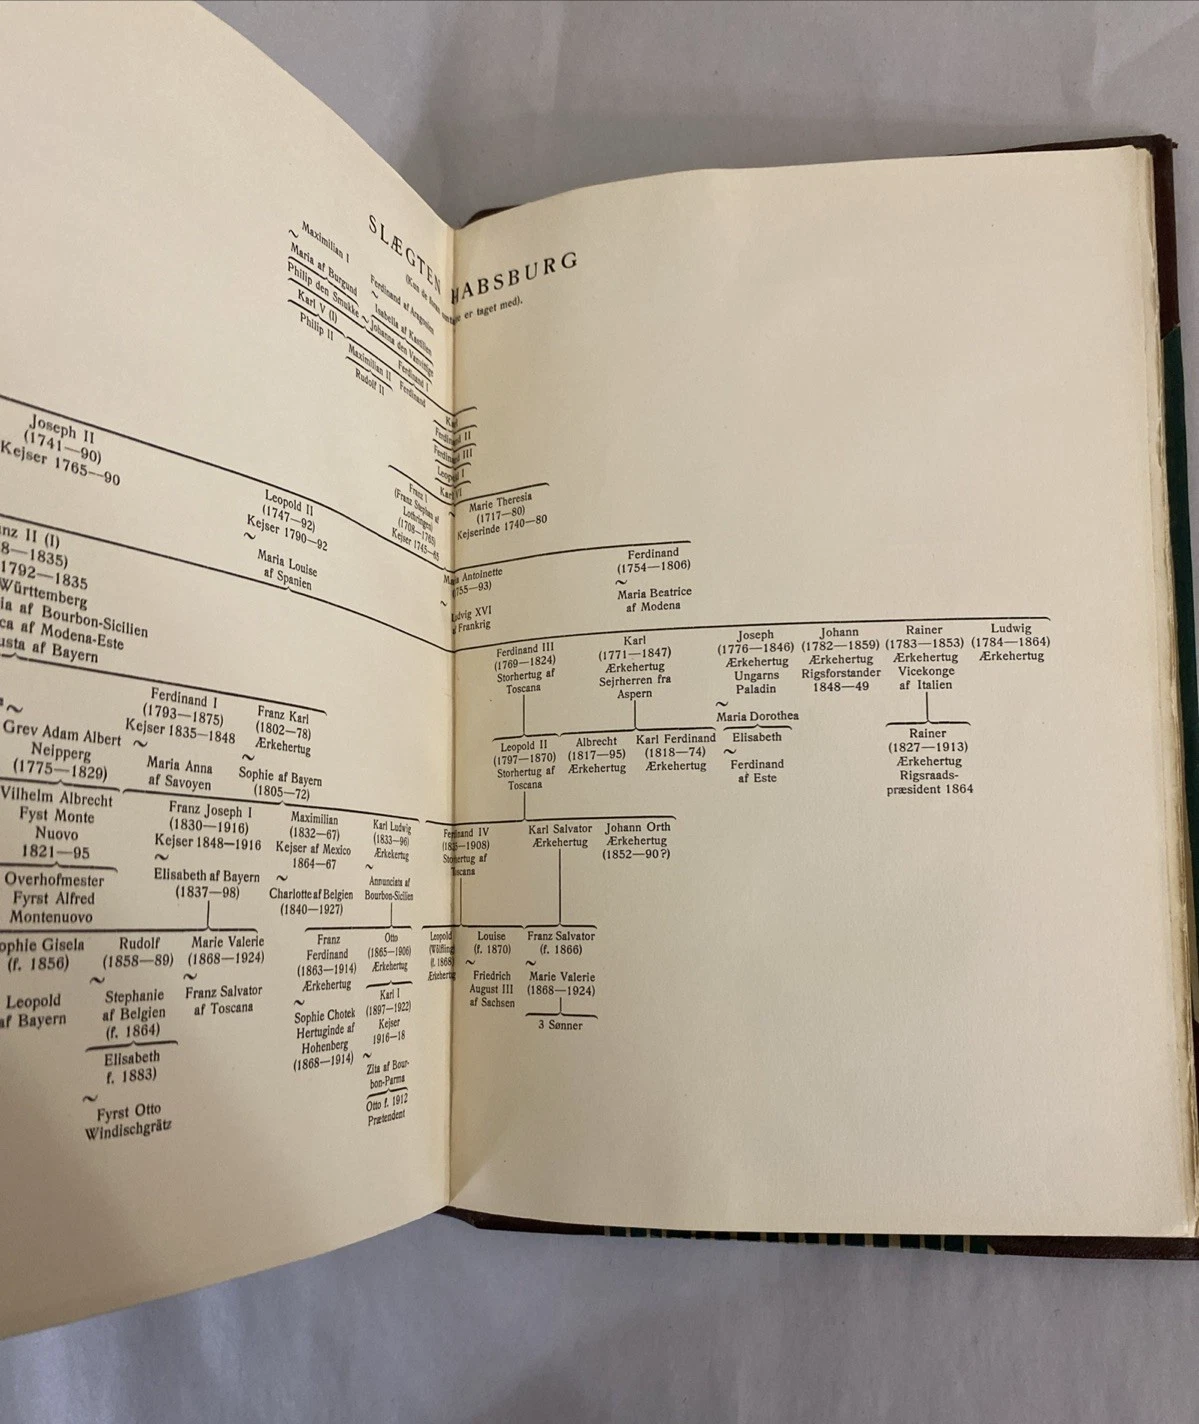 SLÆGTEN HABSBURG
er taget med).
Maximilian I
~
Maria af Burgund
Ferdinand af Aragonien
~
Isabella af Kastilien
Philip den Smukke ~ Johanna den Vanvittige
Karl V (I)
Ferdinand I
Philip II
Maximilian II
Ferdinand
Karl
Rudolf II
Ferdinand II
Ferdinand III
Leopold I
Karl VI
Franz I
(Franz Stephan af
Lothringen)
(1708—1765)
Kejser 1745—65
~
Marie Theresia
(1717—80)
Kejserinde 1740—80
Joseph II
(1741—90)
Kejser 1765—90
Leopold II
(1747—92)
Kejser 1790—92
~
Maria Louise
af Spanien
Antoinette
55—93)
~
Ludvig XVI
Frankrig
Ferdinand
(1754—1806)
~
Maria Beatrice
af Modena
nz II (I)
8—1835)
1792—1835
Württemberg
ia af Bourbon-Sicilien
ca af Modena-Este
usta af Bayern
Ferdinand III
(1769—1824)
Storhertug af
Toscana
Karl
(1771—1847)
Ærkehertug
Sejrherren fra
Aspern
Joseph
(1776—1846)
Ærkehertug
Ungarns
Paladin
~
Maria Dorothea
Johann
(1782—1859)
Ærkehertug
Rigsforstander
1848—49
Rainer
(1783—1853)
Ærkehertug
Vicekonge
af Italien
Ludwig
(1784—1864)
Ærkehertug
~
Grev Adam Albert
Neipperg
(1775—1829)
Ferdinand I
(1793—1875)
Kejser 1835—1848
~
Maria Anna
af Savoyen
Franz Karl
(1802—78)
Ærkehertug
~
Sophie af Bayern
(1805—72)
Leopold II
(1797—1870)
Storhertug af
Toscana
Albrecht
(1817—95)
Ærkehertug
Karl Ferdinand
(1818—74)
Ærkehertug
Elisabeth
~
Ferdinand
af Este
Rainer
(1827—1913)
Ærkehertug
Rigsraads-
præsident 1864
Vilhelm Albrecht
Fyst Monte
Nuovo
1821—95
Franz Joseph I
(1830—1916)
Kejser 1848—1916
~
Elisabeth af Bayern
(1837—98)
Maximilian
(1832—67)
Kejser af Mexico
1864—67
~
Charlotte af Belgien
(1840—1927)
Karl Ludwig
(1833—96)
Ærkehertug
~
Annunciata af
Bourbon-Sicilien
Ferdinand IV
—1908)
Storhertug af
Toscana
Karl Salvator
Ærkehertug
Johann Orth
Ærkehertug
(1852—90?)
Overhofmester
Fyrst Alfred
Montenuovo
ophie Gisela
(f. 1856)
Leopold
af Bayern
Rudolf
(1858—89)
~
Stephanie
af Belgien
(f. 1864)
Marie Valerie
(1868—1924)
~
Franz Salvator
af Toscana
Franz
Ferdinand
(1863—1914)
Ærkehertug
~
Sophie Chotek
Hertuginde af
Hohenberg
(1868—1914)
Otto
(1865—1906)
Ærkehertug
Leopold
(Wölfling
(f. 1868)
Ærkehertug
Louise
(f. 1870)
~
Friedrich
August III
af Sachsen
Franz Salvator
(f. 1866)
~
Marie Valerie
(1868—1924)
Elisabeth
f. 1883)
~
Fyrst Otto
Windischgrätz
Karl I
(1897—1922)
Kejser
1916—18
~
Zita af Bour-
bon-Parma
3 Sønner
Otto f. 1912
Prætendent